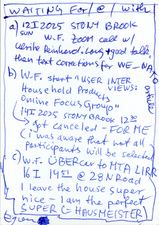 WAITING For / @ / with
a) 12I2025 STONY BROOK
SUN W.F. ZOOM call w/
long good talk,
then text corrections for WE_NATO
article
b) W.F. start "USER INTER
VIEWS:
Household Products
Online Focus Group"
14I2025 STONY BROOK 12
got canceled - FOR ME
(i was aware that not all
participants will be selected
c) W.F. ÜBER car to MTA LIRR
16I 14 @ 28N Road
I leave the house super
nice - I am the perfect
SUPER (= HAUSMEISTER)